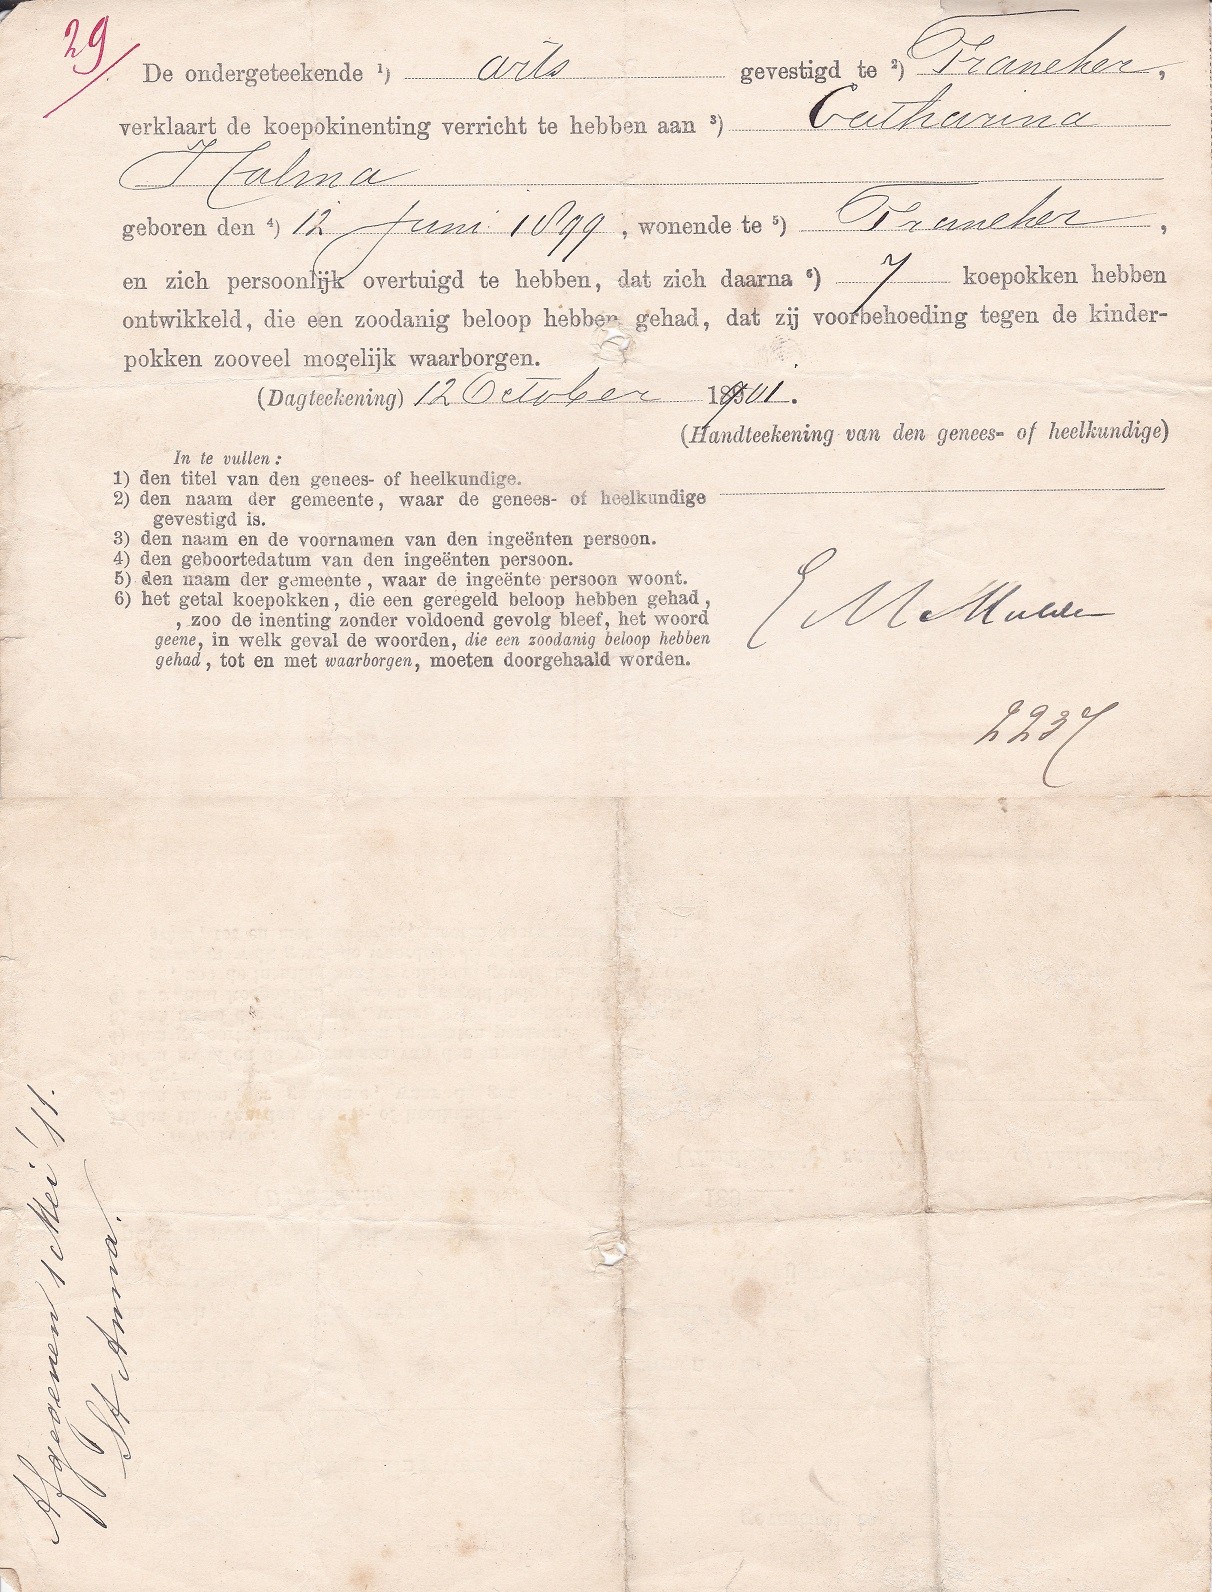 29
De ondergeteekende ¹) arts gevestigd te ²) Franeker,
verklaart de koepokinenting verricht te hebben aan ³) Catharina
Halma
geboren den ⁴) 12 Juni 1899, wonende te ⁵) Franeker,
en zich persoonlijk overtuigd te hebben, dat zich daarna ⁶) 7 koepokken hebben
ontwikkeld, die een zoodanig beloop hebben gehad, dat zij voorbehoeding tegen de kinder-
pokken zooveel mogelijk waarborgen.
(Dagteekening) 12 October 1901.
(Handteekening van den genees- of heelkundige)
In te vullen:
1) den titel van den genees- of heelkundige.
2) den naam der gemeente, waar de genees- of heelkundige
gevestigd is.
3) den naam en de voornamen van den ingeënten persoon.
4) den geboortedatum van den ingeënten persoon.
5) den naam der gemeente, waar de ingeënte persoon woont.
6) het getal koepokken, die een geregeld beloop hebben gehad,
, zoo de inenting zonder voldoend gevolg bleef, het woord
geene, in welk geval de woorden, die een zoodanig beloop hebben
gehad, tot en met waarborgen, moeten doorgehaald worden.
M Mulder
2237
Afgegeven 1 Mei '11.
St Anna.